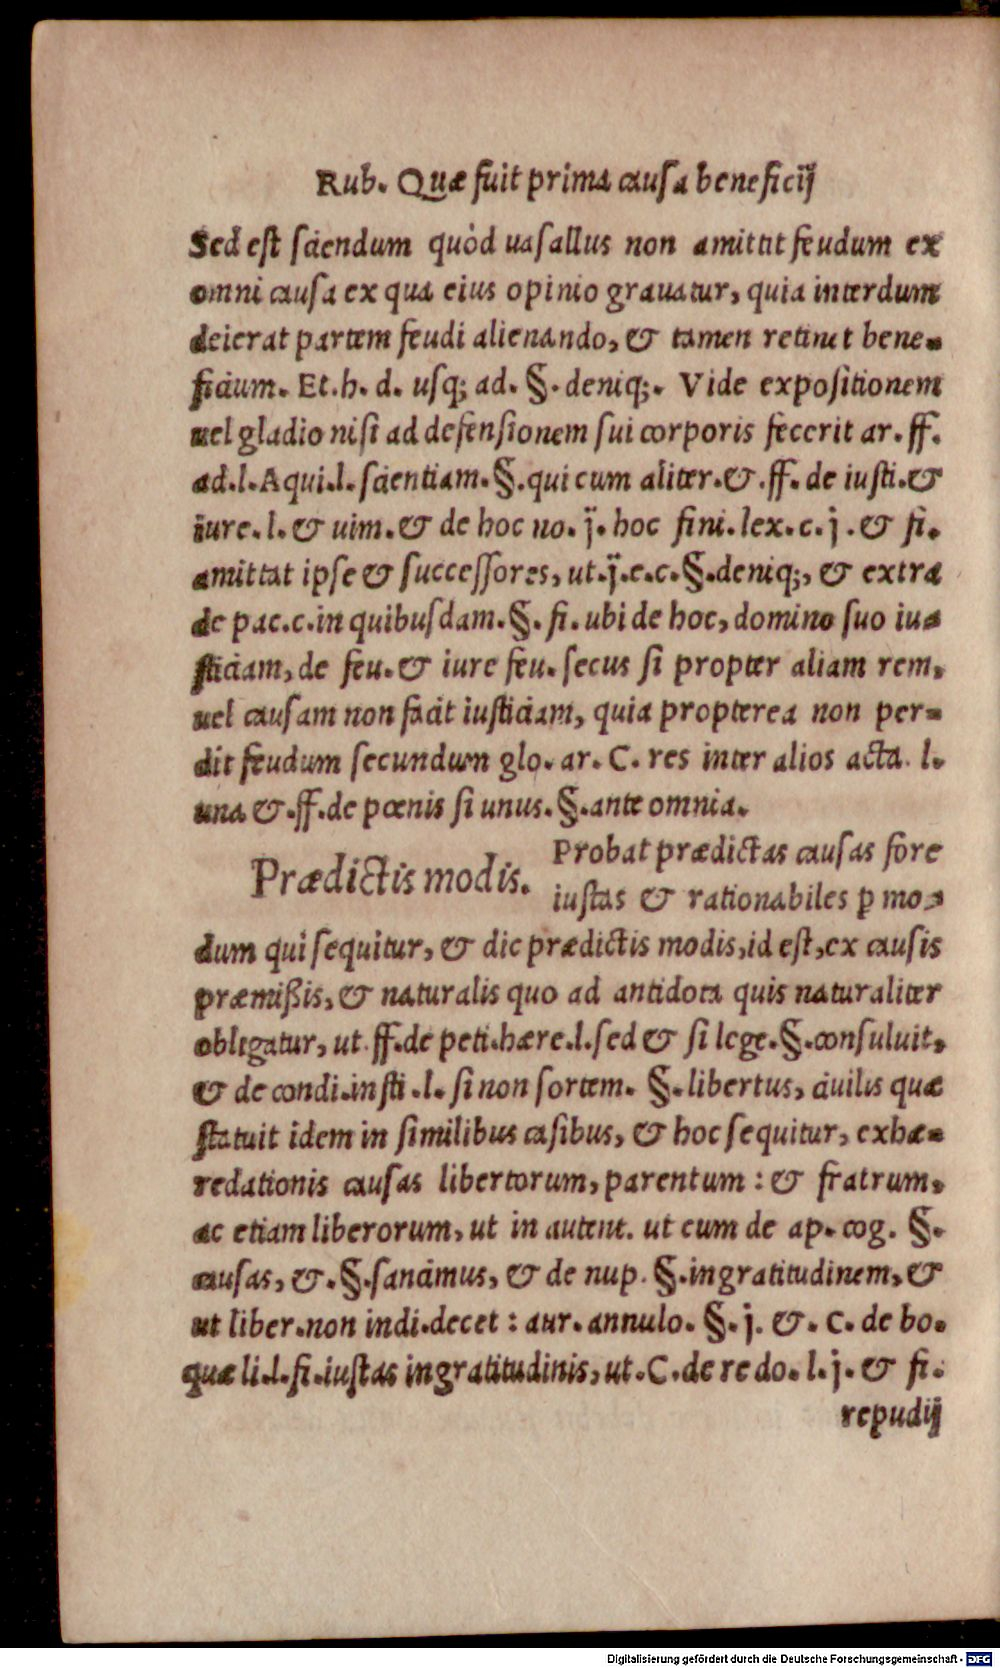 Rub. Quæ fuit prima causa beneficij
Sed est sciendum quòd uasallus non amittit feudum ex
omni causa ex qua eius opinio grauatur, quia interdum
deierat partem feudi alienando, & tamen retinet bene-
ficium. Et.h. d. usq; ad. §. deniq;. Vide expositionem
uel gladio nisi ad defensionem sui corporis fecerit ar. ff.
ad.l.Aqui.l. scientiam.§.qui cum aliter.&.ff. de iusti.&
iure.l.& uim.& de hoc no. ij. hoc fini.lex.c.j.& fi.
amittat ipse & successores, ut.ij.e.c.§.deniq;, & extra
de pac.c.in quibusdam.§. fi. ubi de hoc, domino suo iu-
sticiam, de feu.& iure feu. secus si propter aliam rem,
uel causam non facit iusticiam, quia propterea non per-
dit feudum secundum glo. ar. C. res inter alios acta. l.
una &.ff.de pœnis si unus.§.ante omnia.
Prædictis modis. Probat prædictas causas fore
iustas & rationabiles ꝑ mo-
dum qui sequitur, & dic prædictis modis, id est, ex causis
præmißis, & naturalis quo ad antidora quis naturaliter
obligatur, ut ff.de peti.hære.l.sed & si lege.§.consuluit,
& de condi.insti.l. si non sortem. §.libertus, ciuilis quæ
statuit idem in similibus casibus, & hoc sequitur, exhæ-
redationis causas libertorum, parentum : & fratrum,
ac etiam liberorum, ut in autent. ut cum de ap. cog. §.
causas, &.§.sancimus, & de nup. §.ingratitudinem, &
ut liber.non indi.decet : aur. annulo. §. j. &. C. de bo.
quæ li.l.fi.iustas ingratitudinis, ut.C.de re do. l.j.& fi.
repudij
Digitalisierung gefördert durch die Deutsche Forschungsgemeinschaft - DFG